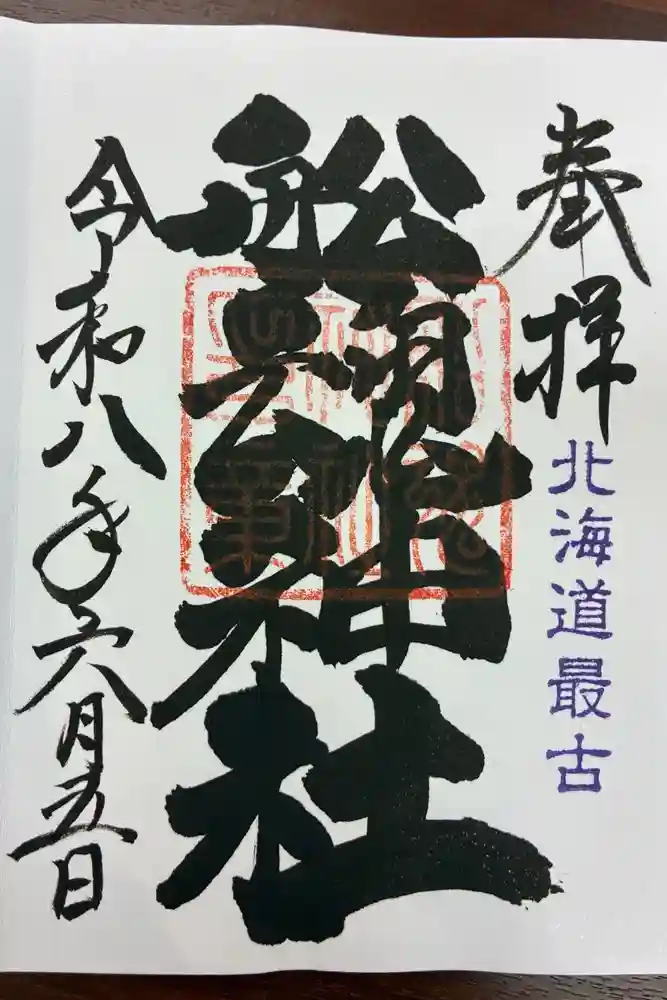 奉拝
北海道最古
舩魂神社
令和八年六月五日